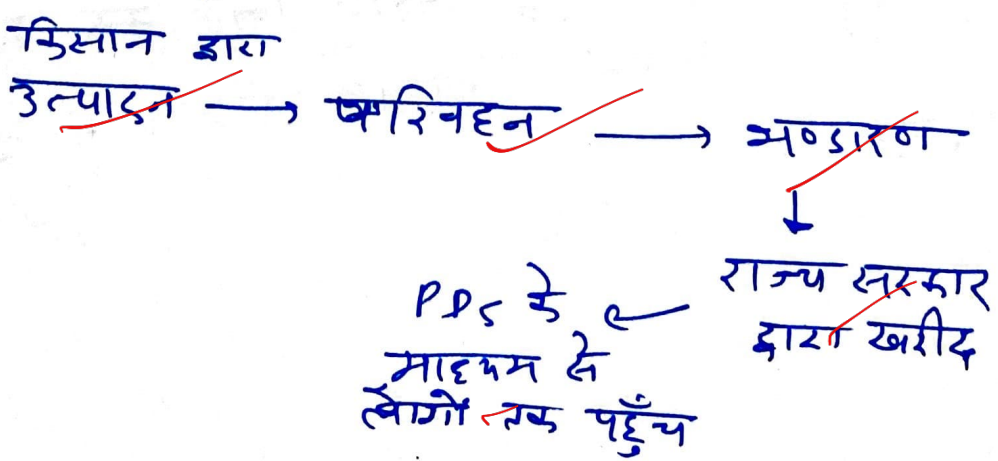 किसान द्वारा
उत्पादन → परिवहन → भण्डारण
↓
राज्य सरकार
द्वारा खरीद
PDS के
माध्यम से
लोगों तक पहुँच